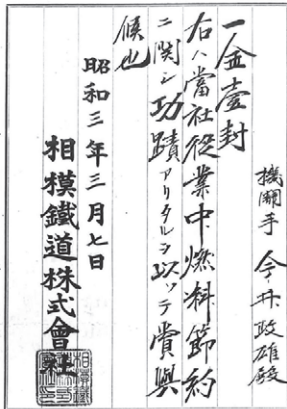 機關手 今井政雄殿
一金壹封
右ハ當社從業中燃料節約
ニ関シ功蹟アリタルヲ以ッテ賞與
候也
昭和三年三月七日
相模鐵道株式會社